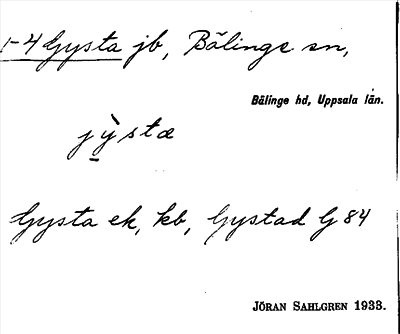 1-4 Gysta jb, Bälinge sn,
Bälinge hd, Uppsala län.
jỳ̠stæ
Gysta ek, kb, Gystad G 84
JÖRAN SAHLGREN 1933.